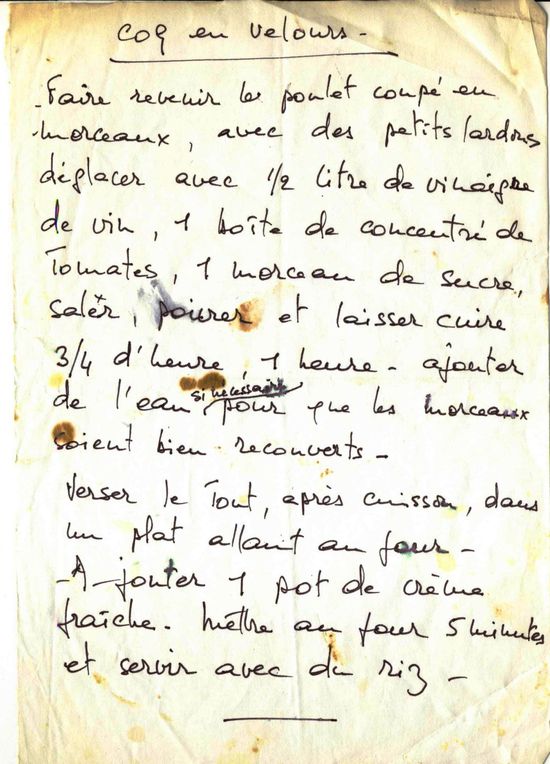 coq en velours -
- Faire revenir le poulet coupé en
morceaux, avec des petits lardons
déglacer avec 1/2 litre de vinaigre
de vin, 1 boîte de concentré de
Tomates, 1 morceau de sucre,
saler, poivrer et laisser cuire
3/4 d'heure, 1 heure - ajouter
si nécessaire
de l'eau pour que les morceaux
soient bien recouverts -
Verser le Tout, après cuisson, dans
un plat allant au four -
- Ajouter 1 pot de crème
fraîche. Mettre au four 5 minutes
et servir avec du riz -